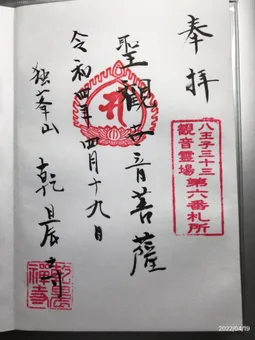 奉拝
八王子三十三
観音霊場 第六番札所
聖観世音菩薩
令和四年四月十九日
独峯山 乾晨寺
2022/04/19